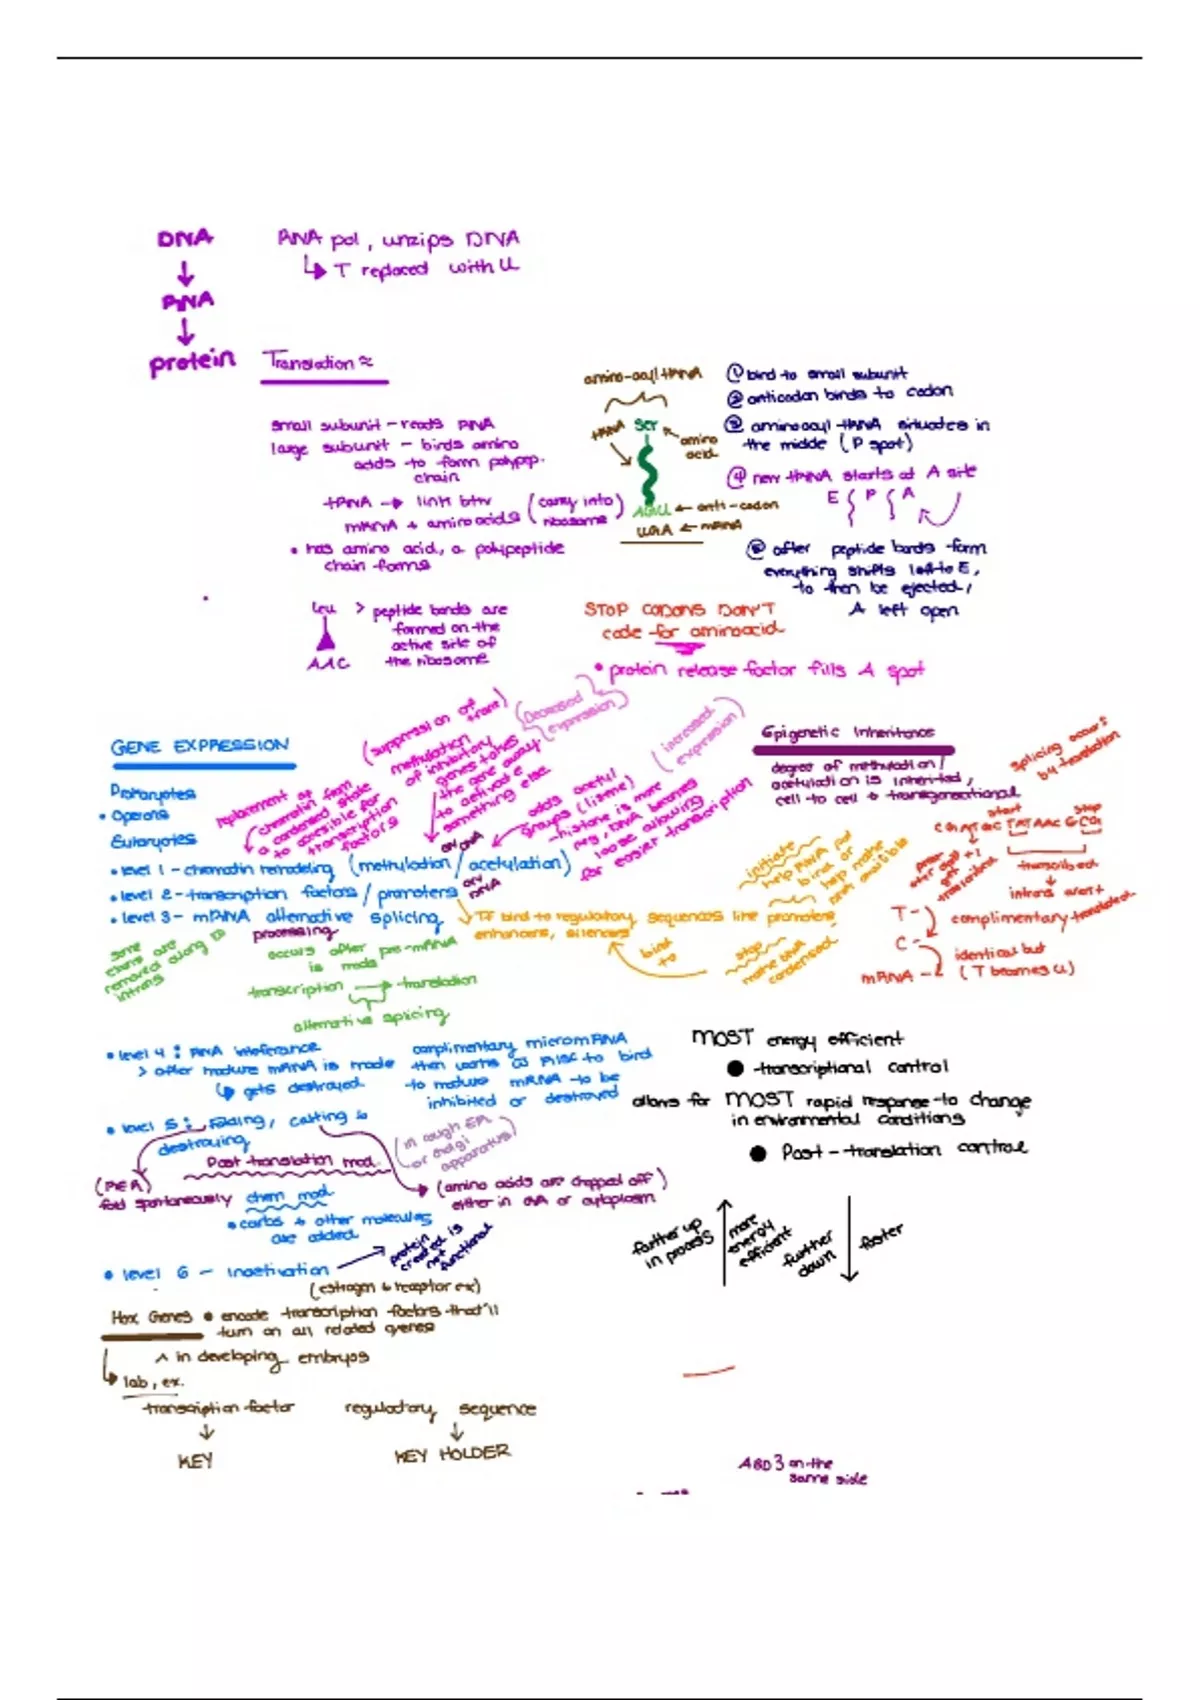 DNA
RNA pol, unzips DNA
↳ T replaced with U
↓
RNA
↓
protein
Translation
small subunit - reads RNA
large subunit - binds amino
acids to form polypep.
chain
tRNA → link btw
mRNA + amino acids (carry into
ribosome)
• has amino acid, a polypeptide
chain forms
Leu > peptide bonds are
formed on the
active site of
the ribosome
AAC
amino-acyl tRNA
tRNA
Ser
amino
acid
AGU ← anti-codon
UGA ← mRNA
① bind to small subunit
② anticodon binds to codon
③ aminoacyl-tRNA situates in
the middle (P spot)
④ new tRNA starts at A site
E P A
⑤ after peptide bonds form
everything shifts left to E,
to then be ejected,
A left open
STOP CODONS DON'T
code for aminoacid
• protein release factor fills A spot
GENE EXPRESSION
Prokaryotes
• Operons
Eukaryotes
• level 1 - chromatin remodeling (methylation/acetylation)
• level 2 - transcription factors / promoters on DNA
• level 3 - mRNA alternative splicing
processing
replacement of
chromatin from
a condensed state
to accesible for
transcription
factors
(suppression of
trans)
methylation
of inhibitory
genes takes
the gene away
to activate
something else
(Decreased
expression)
adds acetyl
groups (lysine)
-histone is more
neg, DNA becomes
loose allowing
for easier transcription
(increased
expression)
TF bind to regulatory sequences like promoters
enhancers, silencers
bind
to
initiate
help RNA pol
bind or
help make
stop
make DNA
condensed
removed along
introns
occurs after pre-mRNA
is made
transcription → translation
alternative splicing
Epigenetic Inheritance
degree of methylation/
acetylation is inherited,
cell to cell & transgenerational
splicing occurs
by translation
start
stop
transcribed
↓
introns aren't
translated
T-
C-
mRNA-
complimentary
identical but
(T becomes U)
• level 4: RNA inteferance
> after mature mRNA is made
↳ gets destroyed
complimentary micromRNA
then works w RISC to bind
to mature mRNA to be
inhibited or destroyed
• level 5: Folding, cutting &
destroying
Post translation mod.
(in rough ER
or golgi
apparatus)
fold spontaneously
chem mod.
• carbs & other molecules
are added
(amino acids are chopped off)
either in or cytoplasm
• level 6 - Inactivation
protein
created is
not
functional
(estrogen & receptor ex)
Hox Genes • encode transcription factors that'll
turn on all related genes
^ in developing embryos
↳ lab, ex.
transcription factor
↓
KEY
regulatory sequence
↓
KEY HOLDER
MOST energy efficient
● transcriptional control
allows for MOST rapid response to change
in environmental conditions
● Post - translation control
farther up
in process
more
energy
efficient
further
down
faster
on the
same side